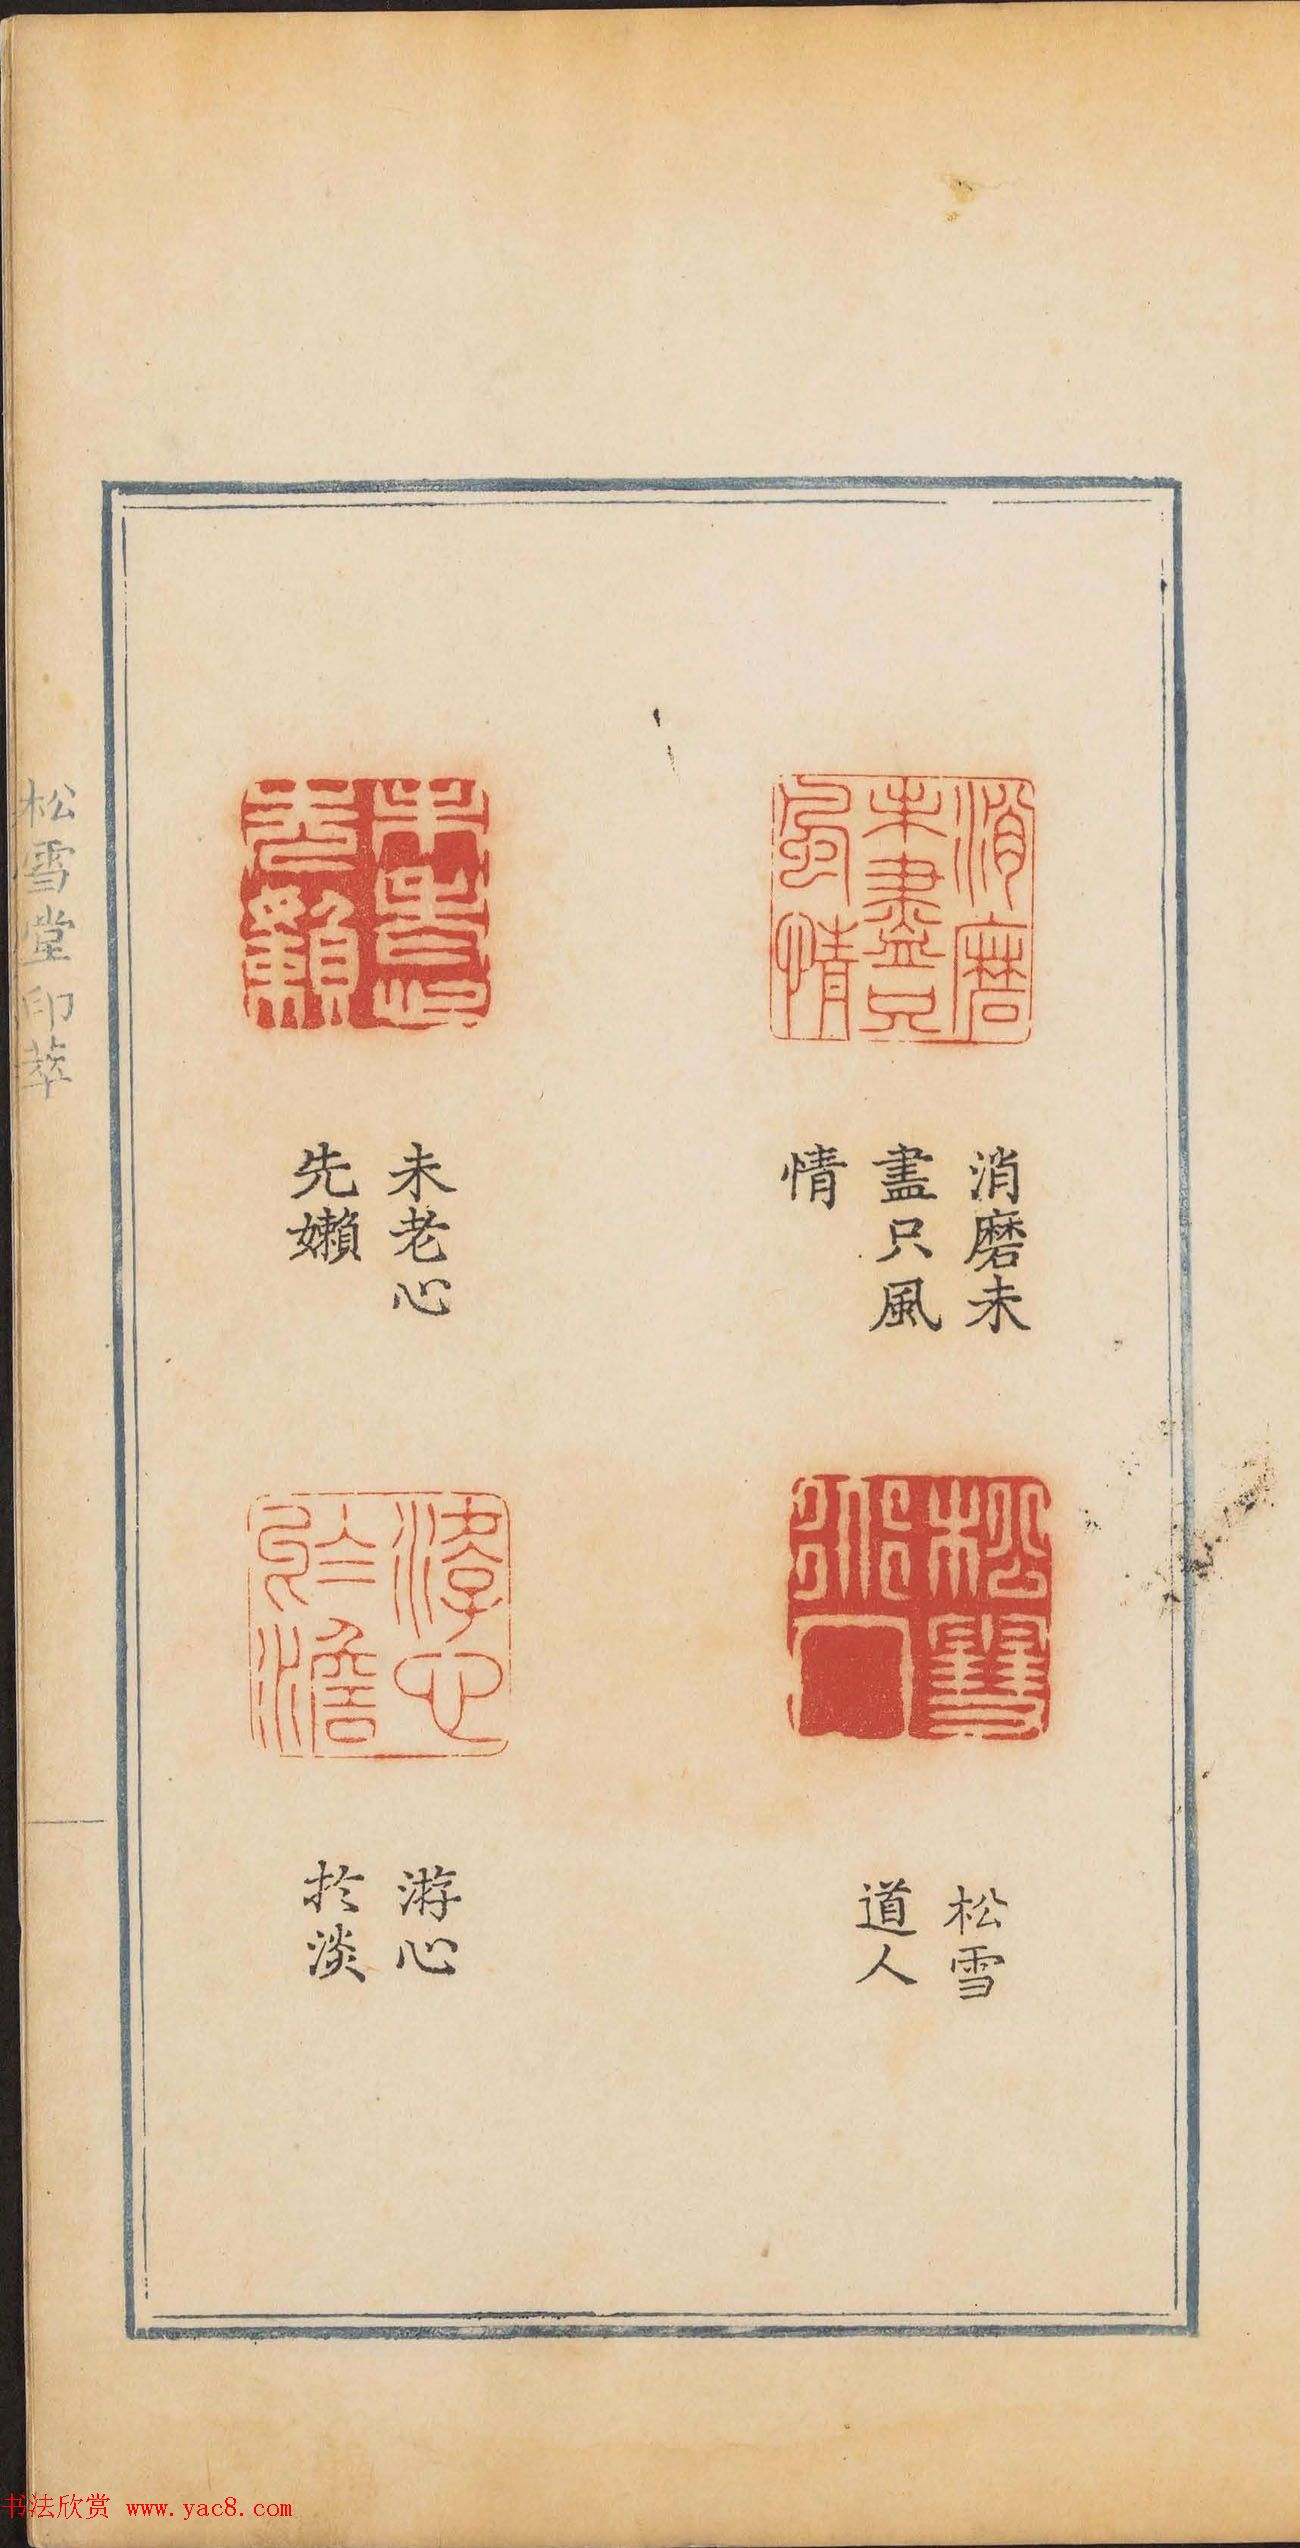 消磨未
盡只風
情
松雪
道人
未老心
先嬾
游心
於淡
松雪堂印萃
书法欣赏 www.yac8.com